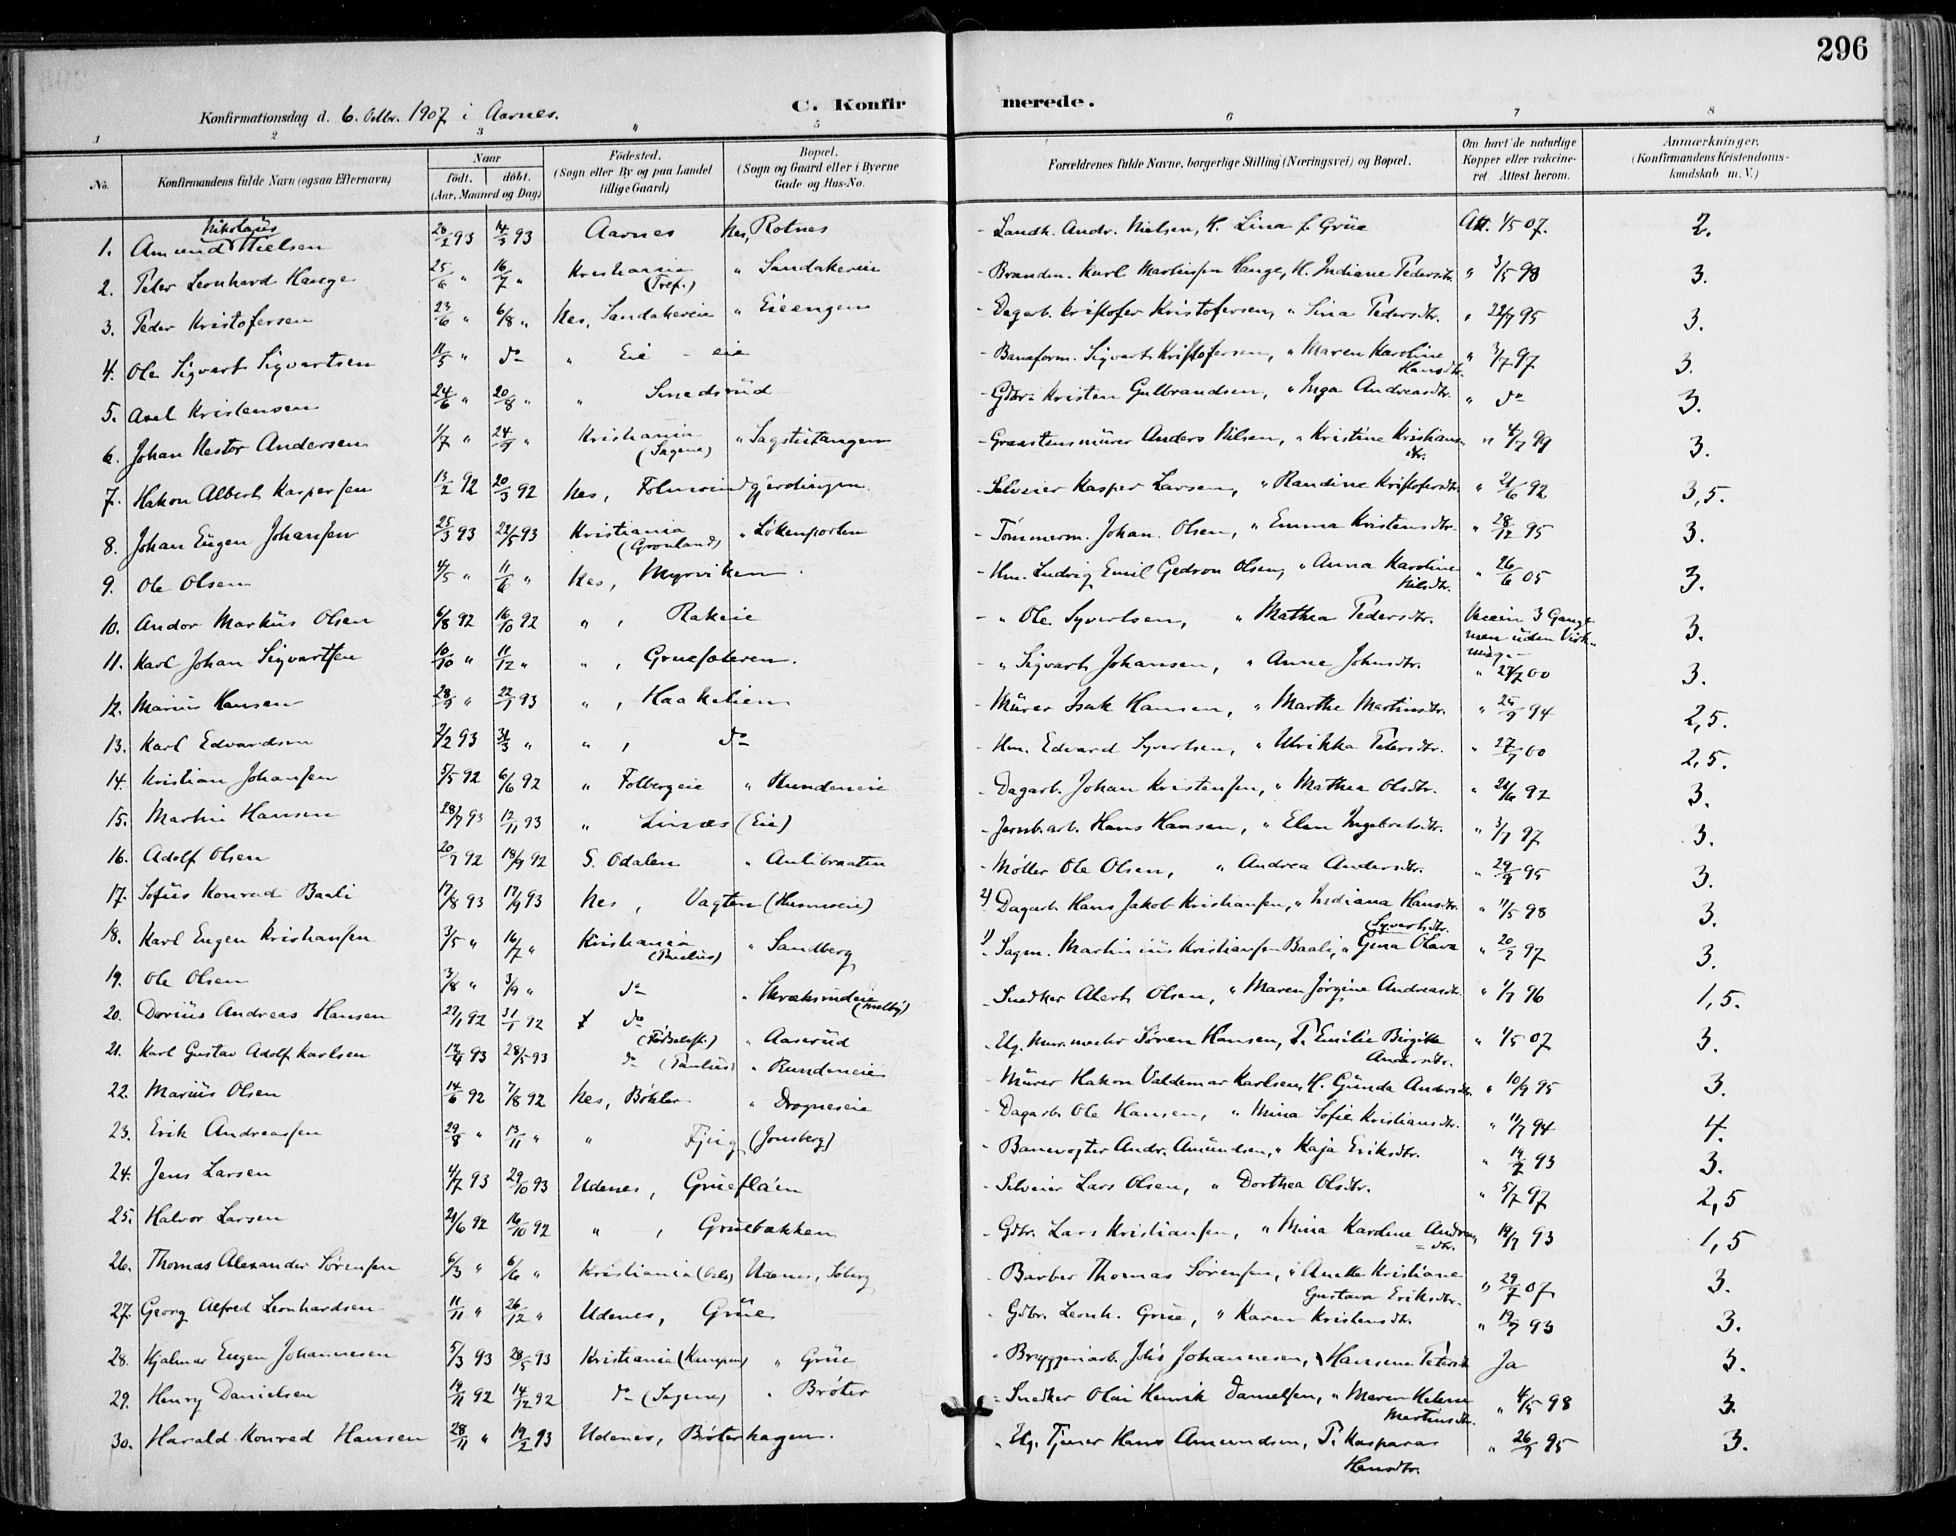 296
C. Konfirmerede.
Konfirmationsdag d. 6. Oktbr. 1907 i Aarnes.
1 2 3 " 5 6 7 8
No. | Konfirmandens fulde Navn (ogsaa Efternavn) | Naar født. døbt. (Aar, Maaned og Dag) | Fødested. (Sogn eller By og paa Landet tillige Gaard) | Bopæl. (Sogn og Gaard eller i Byerne Gade og Hus-No. | Forældrenes fulde Navne, borgerlige Stilling (Næringsvei) og Bopæl. | Om havt de naturlige Kopper eller vakcineret. Attest herom. | Anmærkninger. (Konfirmandens Kristendomskundskab m. V.)
1. Amund Nikolaus Nielsen 26/2 93 14/3 93 Aarnes Nes, Rotnes - Landh. Andr. Nielsen, H. Lina f. Grue Att. 1/5 07. 2.
2. Peter Leonhard Hauge 25/6 " 16/7 " Kristiania (Tref.) " Sandakereie - Brandm. Karl Martinsen Hauge, H. Indiane Pedersdtr. " 3/5 98 3.
3. Peder Kristofersen 23/6 " 6/8 " Nes, Sandakereie " Eieengen - Dagarb. Kristofer Kristofersen, " Lina Pedersdtr. " 22/7 95 3.
4. Ole Sigvart Sigvartsen 11/5 " do " Eie - eie - Baneform. Sigvart Kristofersen, " Maren Karoline Hansdtr. " 3/7 97 3.
5. Axel Kristensen 24/6 " 20/8 " " Smedsrud - Gdbr. Kristen Gulbrandsen, " Inga Andreasdtr. " do 3.
6. Johan Nestor Andersen 1/7 " 24/9 " Kristiania (Sagene) " Sagstutangen - Graastensmurer Anders Nilsen, " Kristine Kristiansdtr. " 4/7 99 3.
7. Hakon Albert Kaspersen 13/2 92 20/3 92 Nes, Folmoindgjerdingen. - Selveier Kasper Larsen, " Randine Kristofersdtr. " 21/6 92 3,5.
8. Johan Eugen Johansen 25/3 93 22/5 93 Kristiania (Grønland) " Løkenporten - Tømmerm. Johan Olsen, " Emma Kristensdtr. " 28/12 95 3.
9. Ole Olsen 4/5 " 11/6 " Nes, Myrviken. - Hm. Ludvig Emil Gedeon Olsen, " Anna Karoline Nilsdtr. " 26/6 05 3.
10. Andor Markus Olsen 6/8 92 16/10 92 " , Rakeie - " Ole Syvertsen, " Mathea Pedersdtr. Vaccin 3 Gange men uden Virkning 3.
11. Karl Johan Sigvartsen 10/10 " 11/12 " " , Gruefoteren. - " Sigvart Johansen, " Anne Johnsdtr. " 27/7 00 3.
12. Marius Hansen 28/9 " 22/1 93 " , Haakelien - Murer Isak Hansen, " Marthe Martinsdtr. " 25/9 94 2,5.
13. Karl Edvardsen 2/2 93 31/3 " " , do - Hm. Edvard Syvertsen, " Ulrikka Petersdtr. " 27/7 00 2,5.
14. Kristian Johansen 5/5 92 6/6 92 " Folbergeie " Rundeneie - Dagarb. Johan Kristensen, " Mathea Olsdtr. " 21/6 92 3.
15. Martin Hansen 28/7 93 12/11 93 " Linaas (Eie) - Jernb.arb. Hans Hansen, " Elen Ingebretsdtr. " 3/7 97 3.
16. Adolf Olsen 20/7 92 18/9 92 S. Odalen " Aulibraaten - Møller Ole Olsen, " Andrea Andersdtr. " 29/9 95 3.
17. Sofus Konrad Baali 17/8 93 17/9 93 Nes, Vagten (Husmoeie) 2) Dagarb. Hans Jakob Kristiansen, " Indiana Hansdtr. " 11/5 98 3.
18. Karl Eugen Kristiansen 3/5 " 16/7 " Kristiania (Paulus) " Sandberg 1) Sagm. Martinius Kristiansen Baali, " Gina Olava Syvertsdtr. " 20/9 97 3.
19. Ole Olsen 3/8 " 3/9 " do " Skræksrudeie (Melby) - Snedker Alert Olsen, " Maren Jørgine Andreasdtr. " 1/7 96 1,5.
20. Dorius Andreas Hansen 27/1 92 31/1 92 do (Fødselsst.) " Aaserud - Ug. Murmester Søren Hansen, P. Emilie Birgitte Andersdtr. " 1/5 07 3.
21. Karl Gustav Adolf Karlsen 12/4 93 28/5 93 do (Paulus) " Rundeneie - Murer Hakon Valdemar Karlsen, H. Gunda Andersdtr. " 10/9 95 3.
22. Marius Olsen 14/6 92 7/8 92 Nes, Bøhler " Drogneseie - Dagarb. Ole Hansen, " Mina Sofie Kristiansdtr. " 11/7 94 4.
23. Erik Andreassen 29/8 " 13/11 " " Fjeig (Jonsberg) - Banevogter Andr. Amundsen, " Kaja Eriksdtr. " 19/7 93 3.
24. Jens Larsen 4/7 93 29/10 93 Udenes, Grueflaen - Selveier Lars Olsen, " Dorthea Olsdtr. " 5/7 97 2,5
25. Halvor Larsen 21/6 92 16/10 92 " , Gruebakken - Gdbr. Lars Kristiansen, " Mina Karoline Andreasdtr. 19/7 93 1,5
26. Thomas Alexander Sørensen 6/3 " 6/6 " Kristiania (Oslo) Udenes, Soberg - Barber Thomas Sørensen, " Anette Kristiane Gustava Eriksdtr. " 29/7 07 3.
27. Georg Alfred Leonhardsen 11/11 " 26/12 " Udenes, Grue - Gdbr. Leonh. Grue, " Karen Kristensdtr. " 19/7 93 3.
28. Hjalmar Eugen Johannesen 5/3 93 28/5 93 Kristiania (Kampen) " Grue - Bryggeriarb. Johs Johannesen, Hansine Petersdtr Ja 3.
29. Henry Danielsen 19/11 92 14/12 92 do (Sagene) " Brøter - Snedker Olai Henrik Danielsen, " Maren Helene Martinsdtr. " 4/5 98 3.
30. Harald Konrad Hansen 28/11 " 19/2 93 Udenes, Brøterhagen. - Ug. Tjener Hans Amundsen, P. Kaspara Hansdtr. " 26/7 95 3.